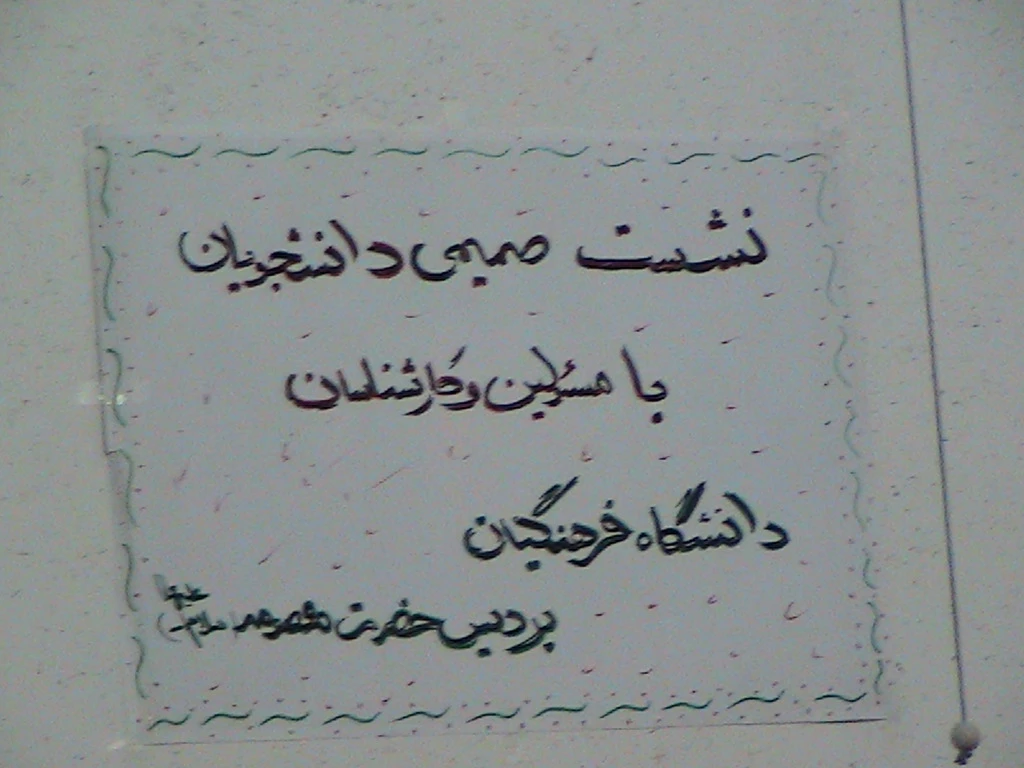 نشست صمیمی دانشجویان
با مسئولین و کارشناسان
دانشگاه فرهنگیان
پردیس حضرت معصومه (سلام الله علیها)